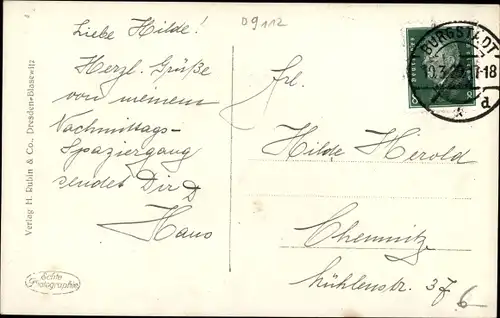 Liebe Hilde!
Herzl. Grüße
von meinem
Nachmittags-
Spaziergang
sendet Dir D
Hans
D9112
BURGSTÄDT
17-18
a
8
Frl.
Hilde Herold
Chemnitz
Mühlenstr. 37
6
Verlag H. Rubin & Co., Dresden-Blasewitz
Echte
Photographie